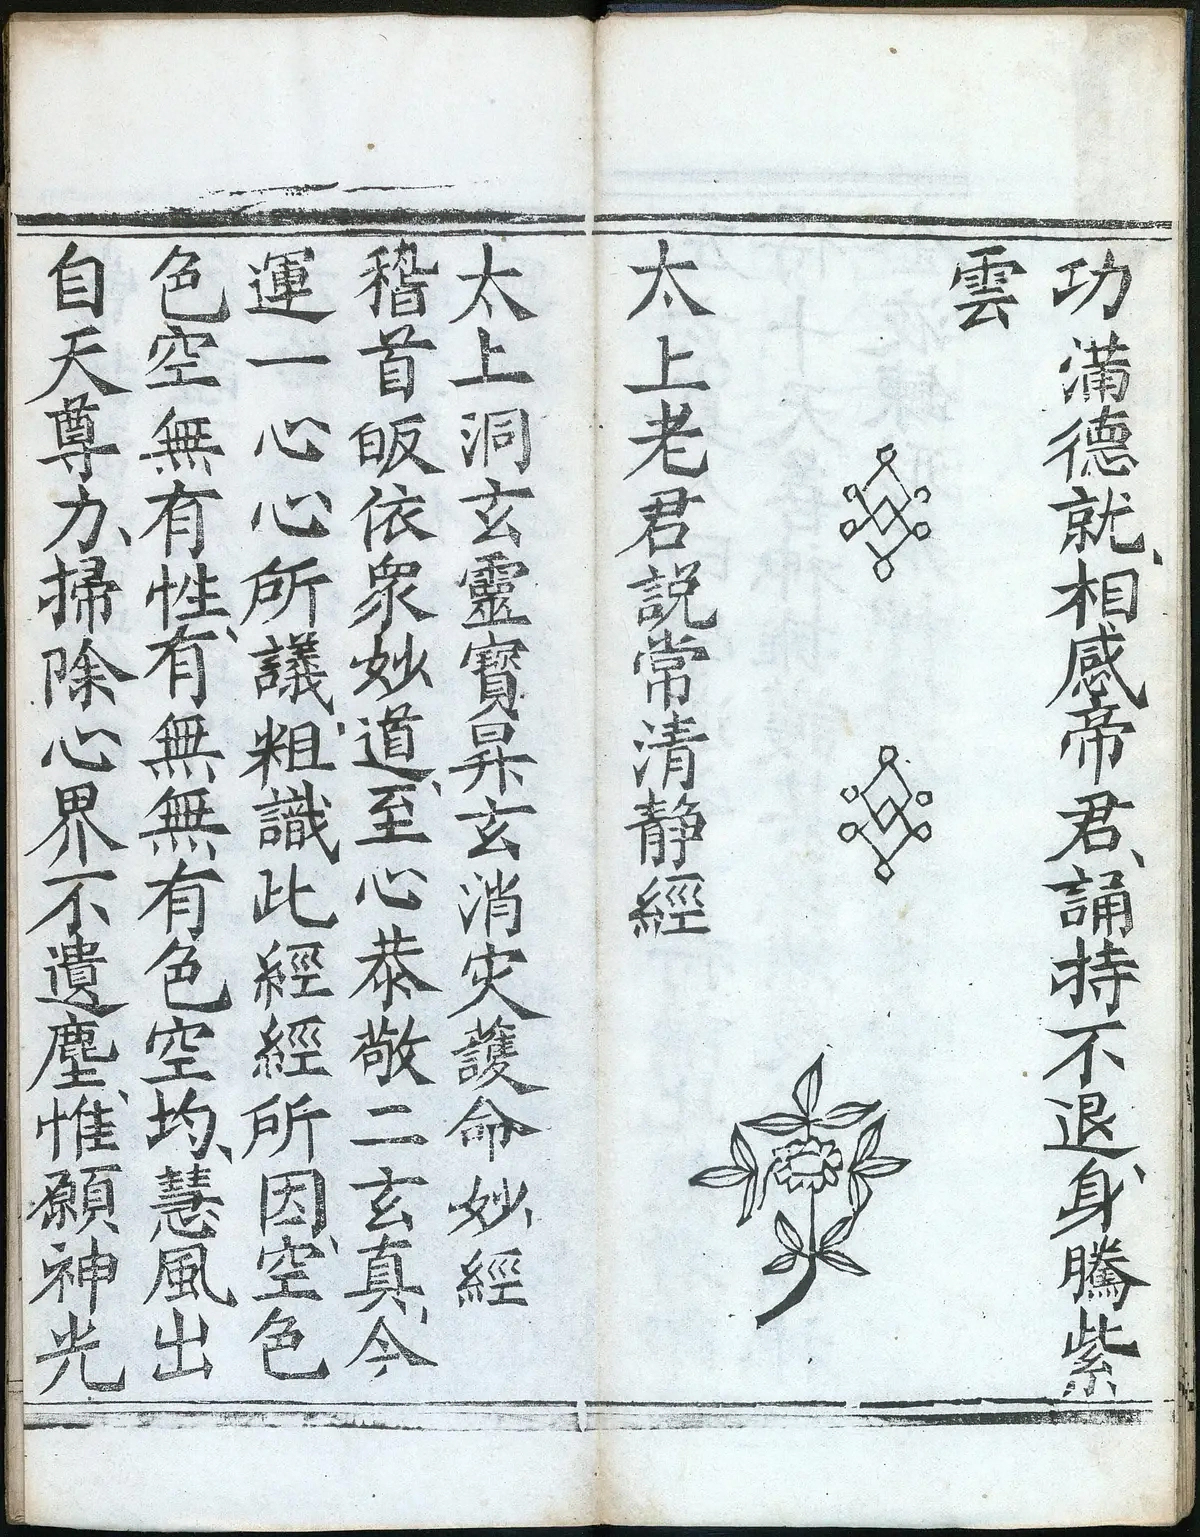 功滿德就、相感帝君、誦持不退、身騰紫
雲
太上老君説常清静經
太上洞玄靈寳昇玄消灾護命妙經
稽首皈依衆妙道、至心恭敬二玄真、今
運一心心所議、粗識此經經所因、空色
色空無有性、有無無有色空均、慧風出
自天尊力、掃除心界不遺塵、惟願神光